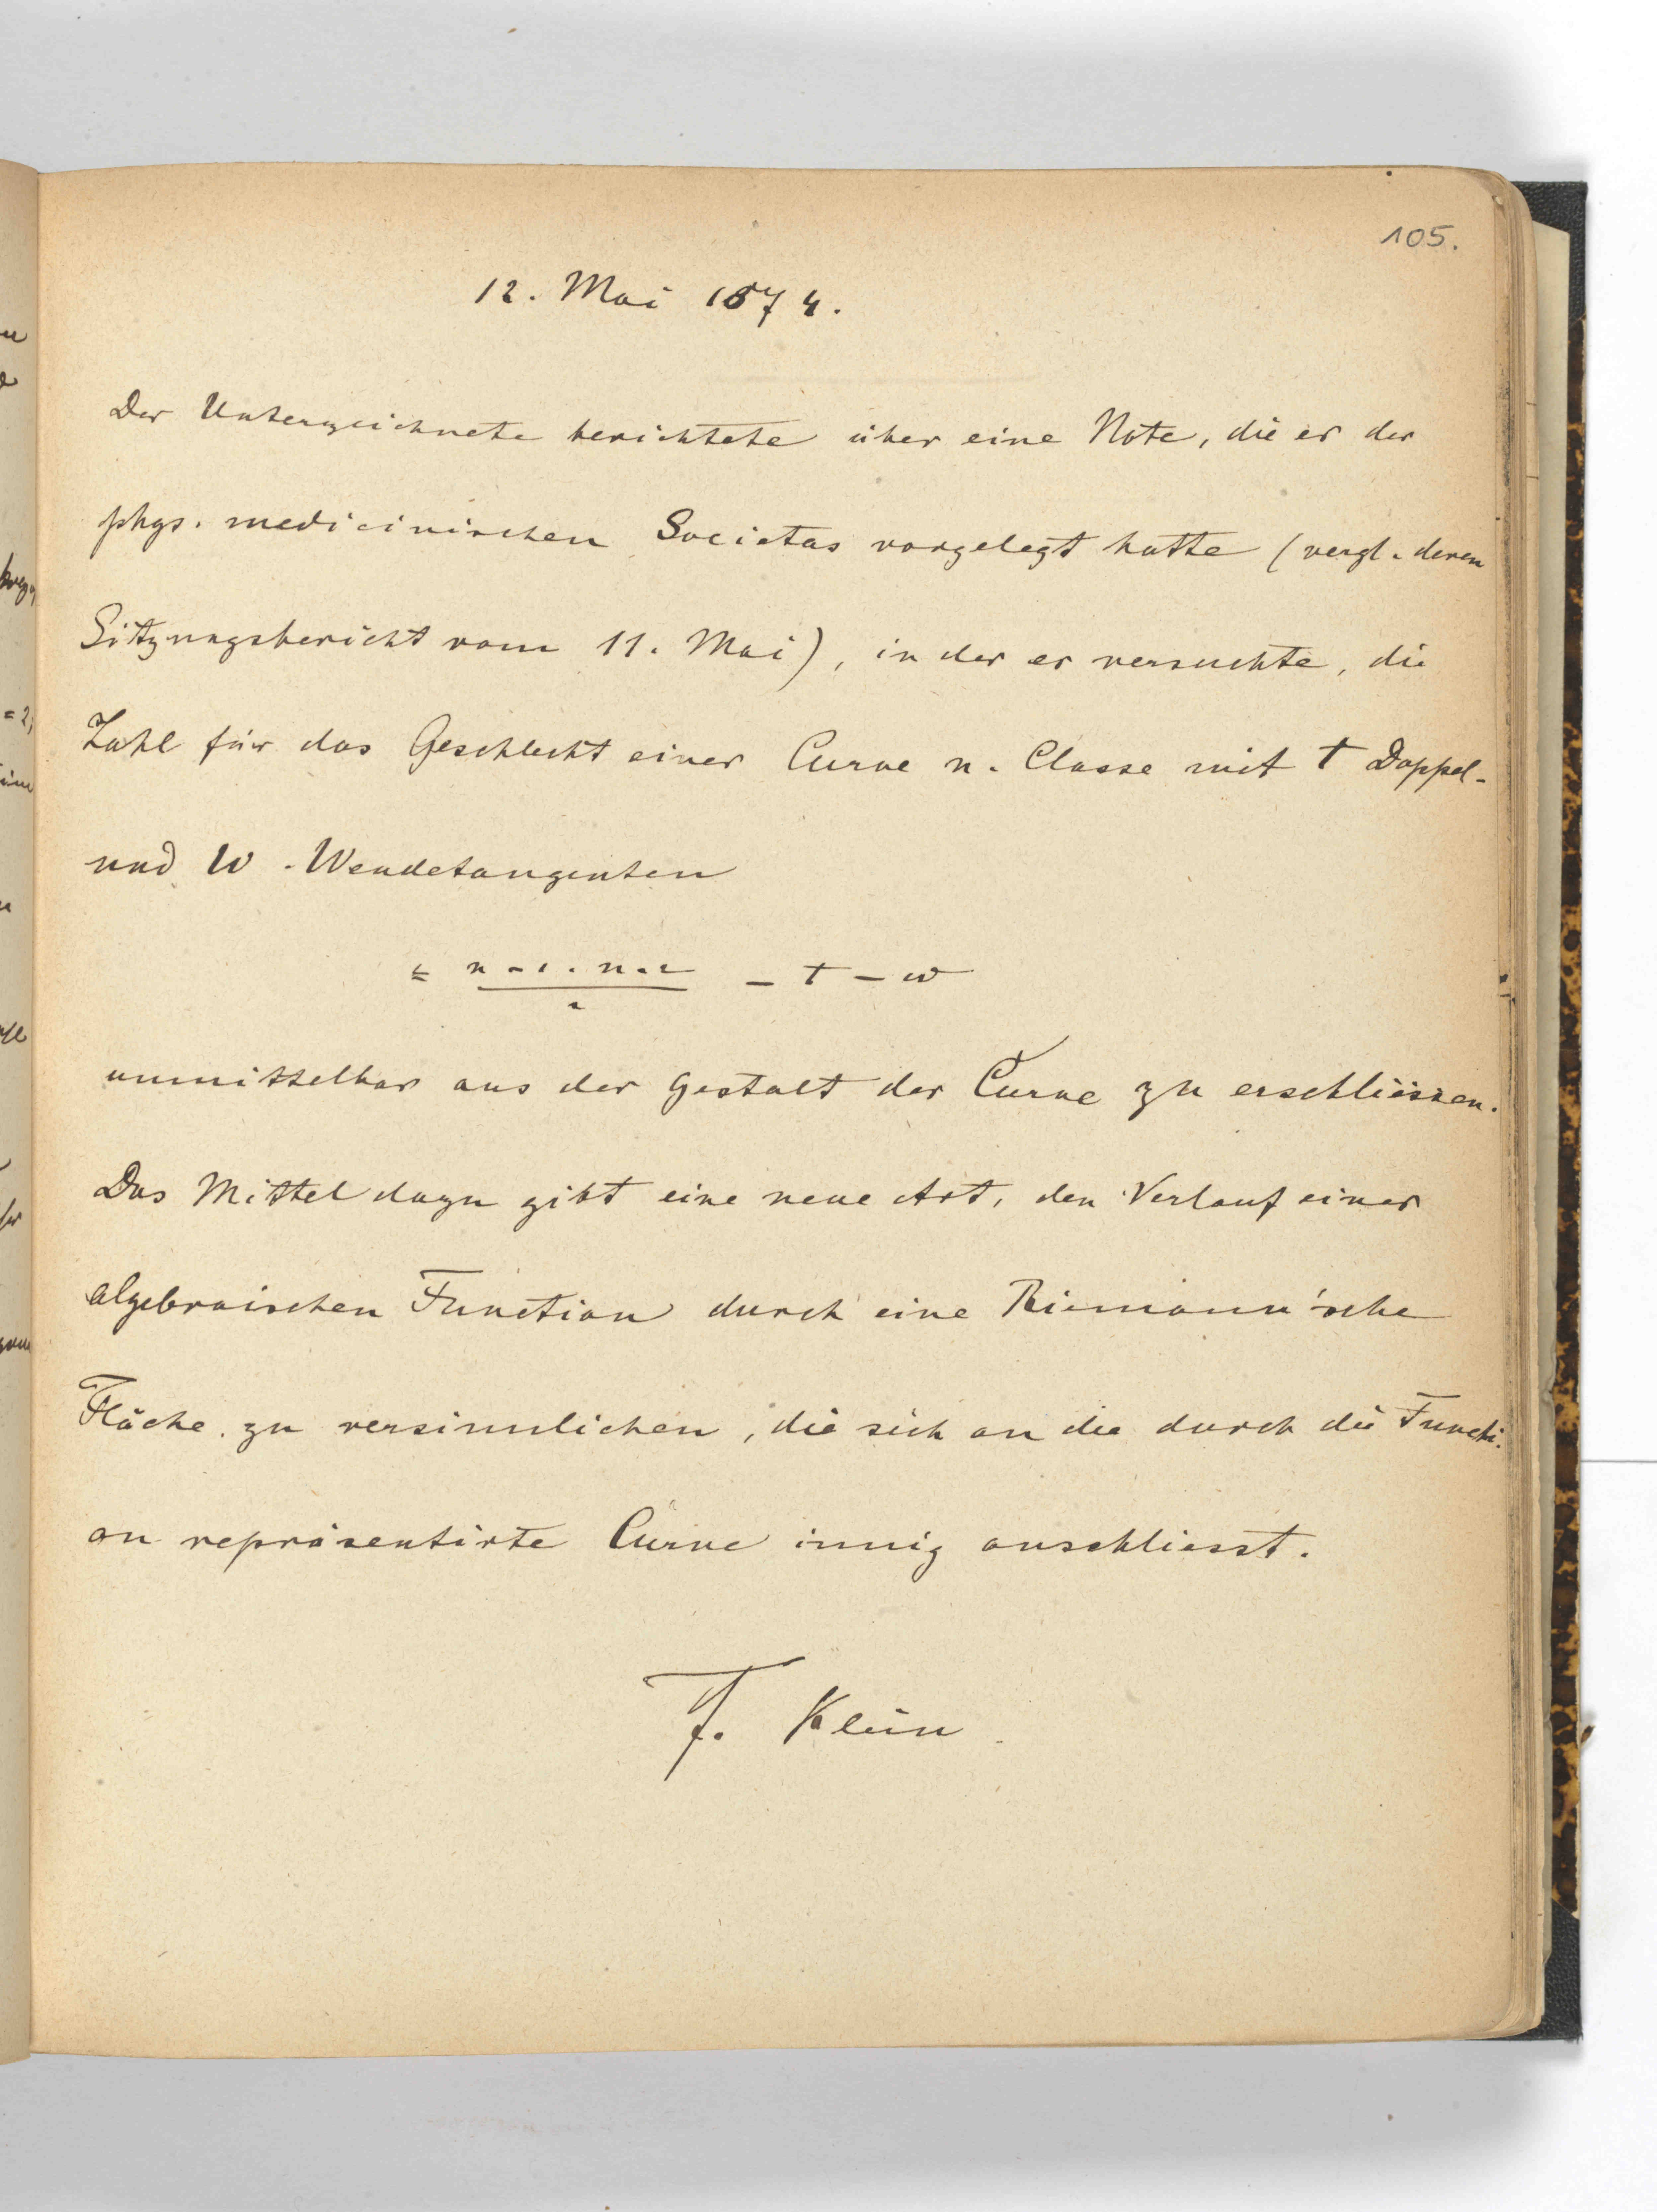 105.
12. Mai 1874.
Der Unterzeichnete berichtete über eine Note, die er der
phys. medicinischen Societas vorgelegt hatte (vergl. deren
Sitzungsbericht vom 11. Mai), in der er versuchte, die
Zahl für das Geschlecht einer Curve n. Classe mit t Doppel-
und w - Wendetangenten
= n-1 . n-2 / 2 - t - w
unmittelbar aus der Gestalt der Curve zu erschliessen.
Das Mittel dazu gibt eine neue Art, den Verlauf einer
algebraischen Function durch eine Riemann'sche
Fläche zu versinnlichen, die sich an die durch die Functi-
on repräsentirte Curve innig anschliesst.
F. Klein